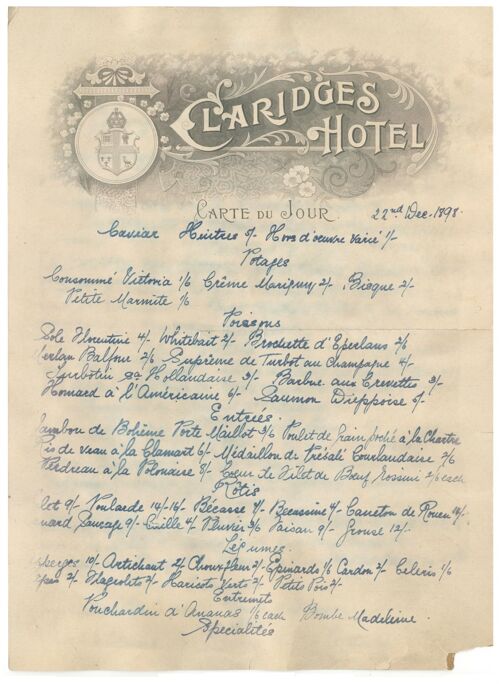 CLARIDGES
HOTEL
CARTE DU JOUR. 22nd Dec. 1898.
Caviar Huitres 5/- Hors d'oeuvre varié 1/-
Potages
Consommé Victoria 1/6 Crême Marigny 2/- Bisque 2/-
Petite Marmite 1/6
Poissons
Sole Florentine 4/- Whitebait 2/- Brochette d'Eperlans 2/6
Merlan Balfour 2/6 Suprème de Turbot au Champagne 4/-
Turbotin Hollandaise 3/- Barbue aux Crevettes 3/-
Homard à l'Américaine 6/- Saumon Dieppoise 5/-
Entrées.
Jambon de Bohême Porte Maillot 3/6 Poulet de grain poché à la Chartre
Ris de veau à la Clamart 6/- Médaillon de Courlandaise 2/6
Perdreau à la Polonaise 8/- Coeur de Filet de Boeuf Rossini 2/6 each
Rôtis
9/- Poularde 14/-16/- Bécasse 7/- Bécassine 4/- Caneton de Rouen
Canard Sauvage 9/- Caille 4/- Pluvier 3/6 Faisan 9/- Grouse 12/-
Légumes.
Asperges 10/- Artichaut 2/- Chouxfleur 2/- Epinards 1/6 Cardon 2/- Céleris 1/6
2/- Flageolets 2/- Haricots Verts 2/- Petits Pois 2/-
Entremets
d'Ananas 1/6 each Bombe Madeleine.
Spécialités